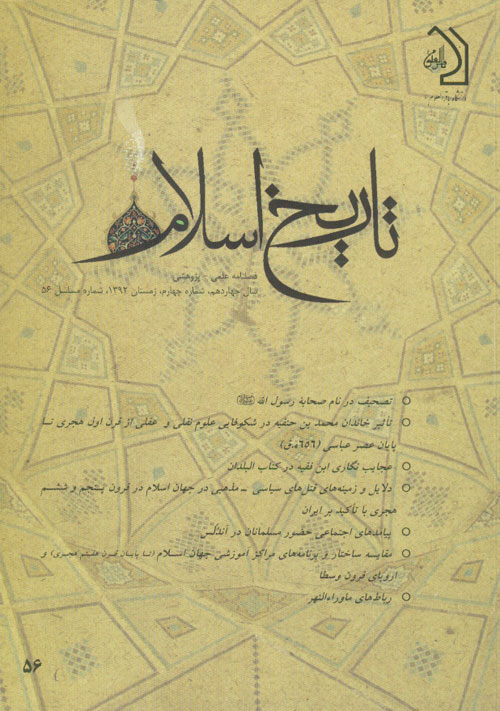 تاریخ اسلام
فصلنامه علمی - پژوهشی
سال چهاردهم، شماره چهارم، زمستان ۱۳۹۲، شماره مسلسل ۵۶
تصحیف در نام صحابهٔ رسول الله
تأثیر خاندان محمد بن حنفیه در شکوفایی علوم نقلی و عقلی از قرن اول هجری تا
پایان عصر عباسی (۶۵۶ ه‍.ق)
عجایب نگاری ابن فقیه در کتاب البلدان
دلایل و زمینه‌های قتل‌های سیاسی - مذهبی در جهان اسلام در قرون پنجم و ششم
هجری با تأکید بر ایران
پیامدهای اجتماعی حضور مسلمانان در آندلس
مقایسه ساختار و برنامه‌های مراکز آموزشی جهان اسلام (تا پایان قرن هفتم هجری) و
اروپای قرون وسطا
رباط‌های ماوراءالنهر
۵۶